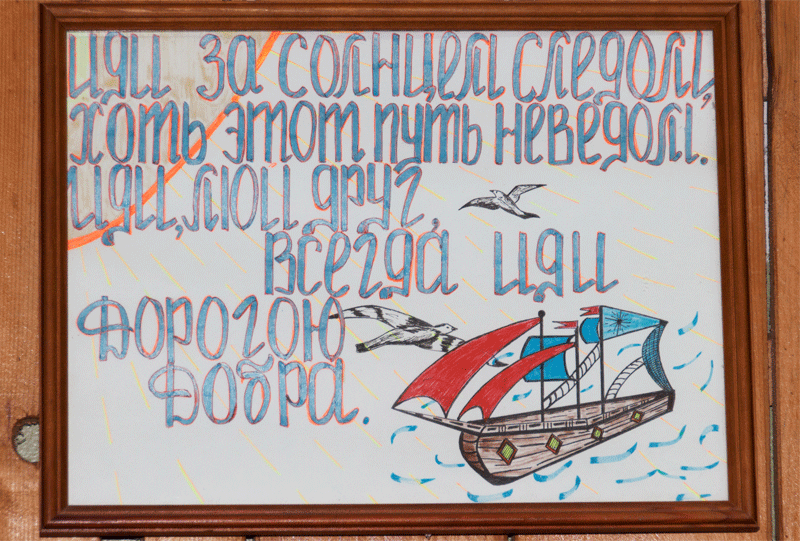 иди за солнцем следом,
хоть этот путь неведом.
иди, мой друг,
всегда иди
Дорогою
Добра.